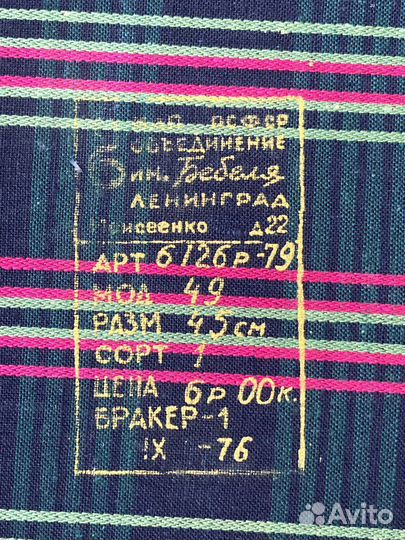 РСФСР
ОБЪЕДИНЕНИЕ
б им. Бебеля
ЛЕНИНГРАД
Моисеенко д22
АРТ 6126р-79
МОД 49
РАЗМ 45 см
СОРТ 1
ЦЕНА 6р 00к.
БРАКЕР-1
IX -76
Avito